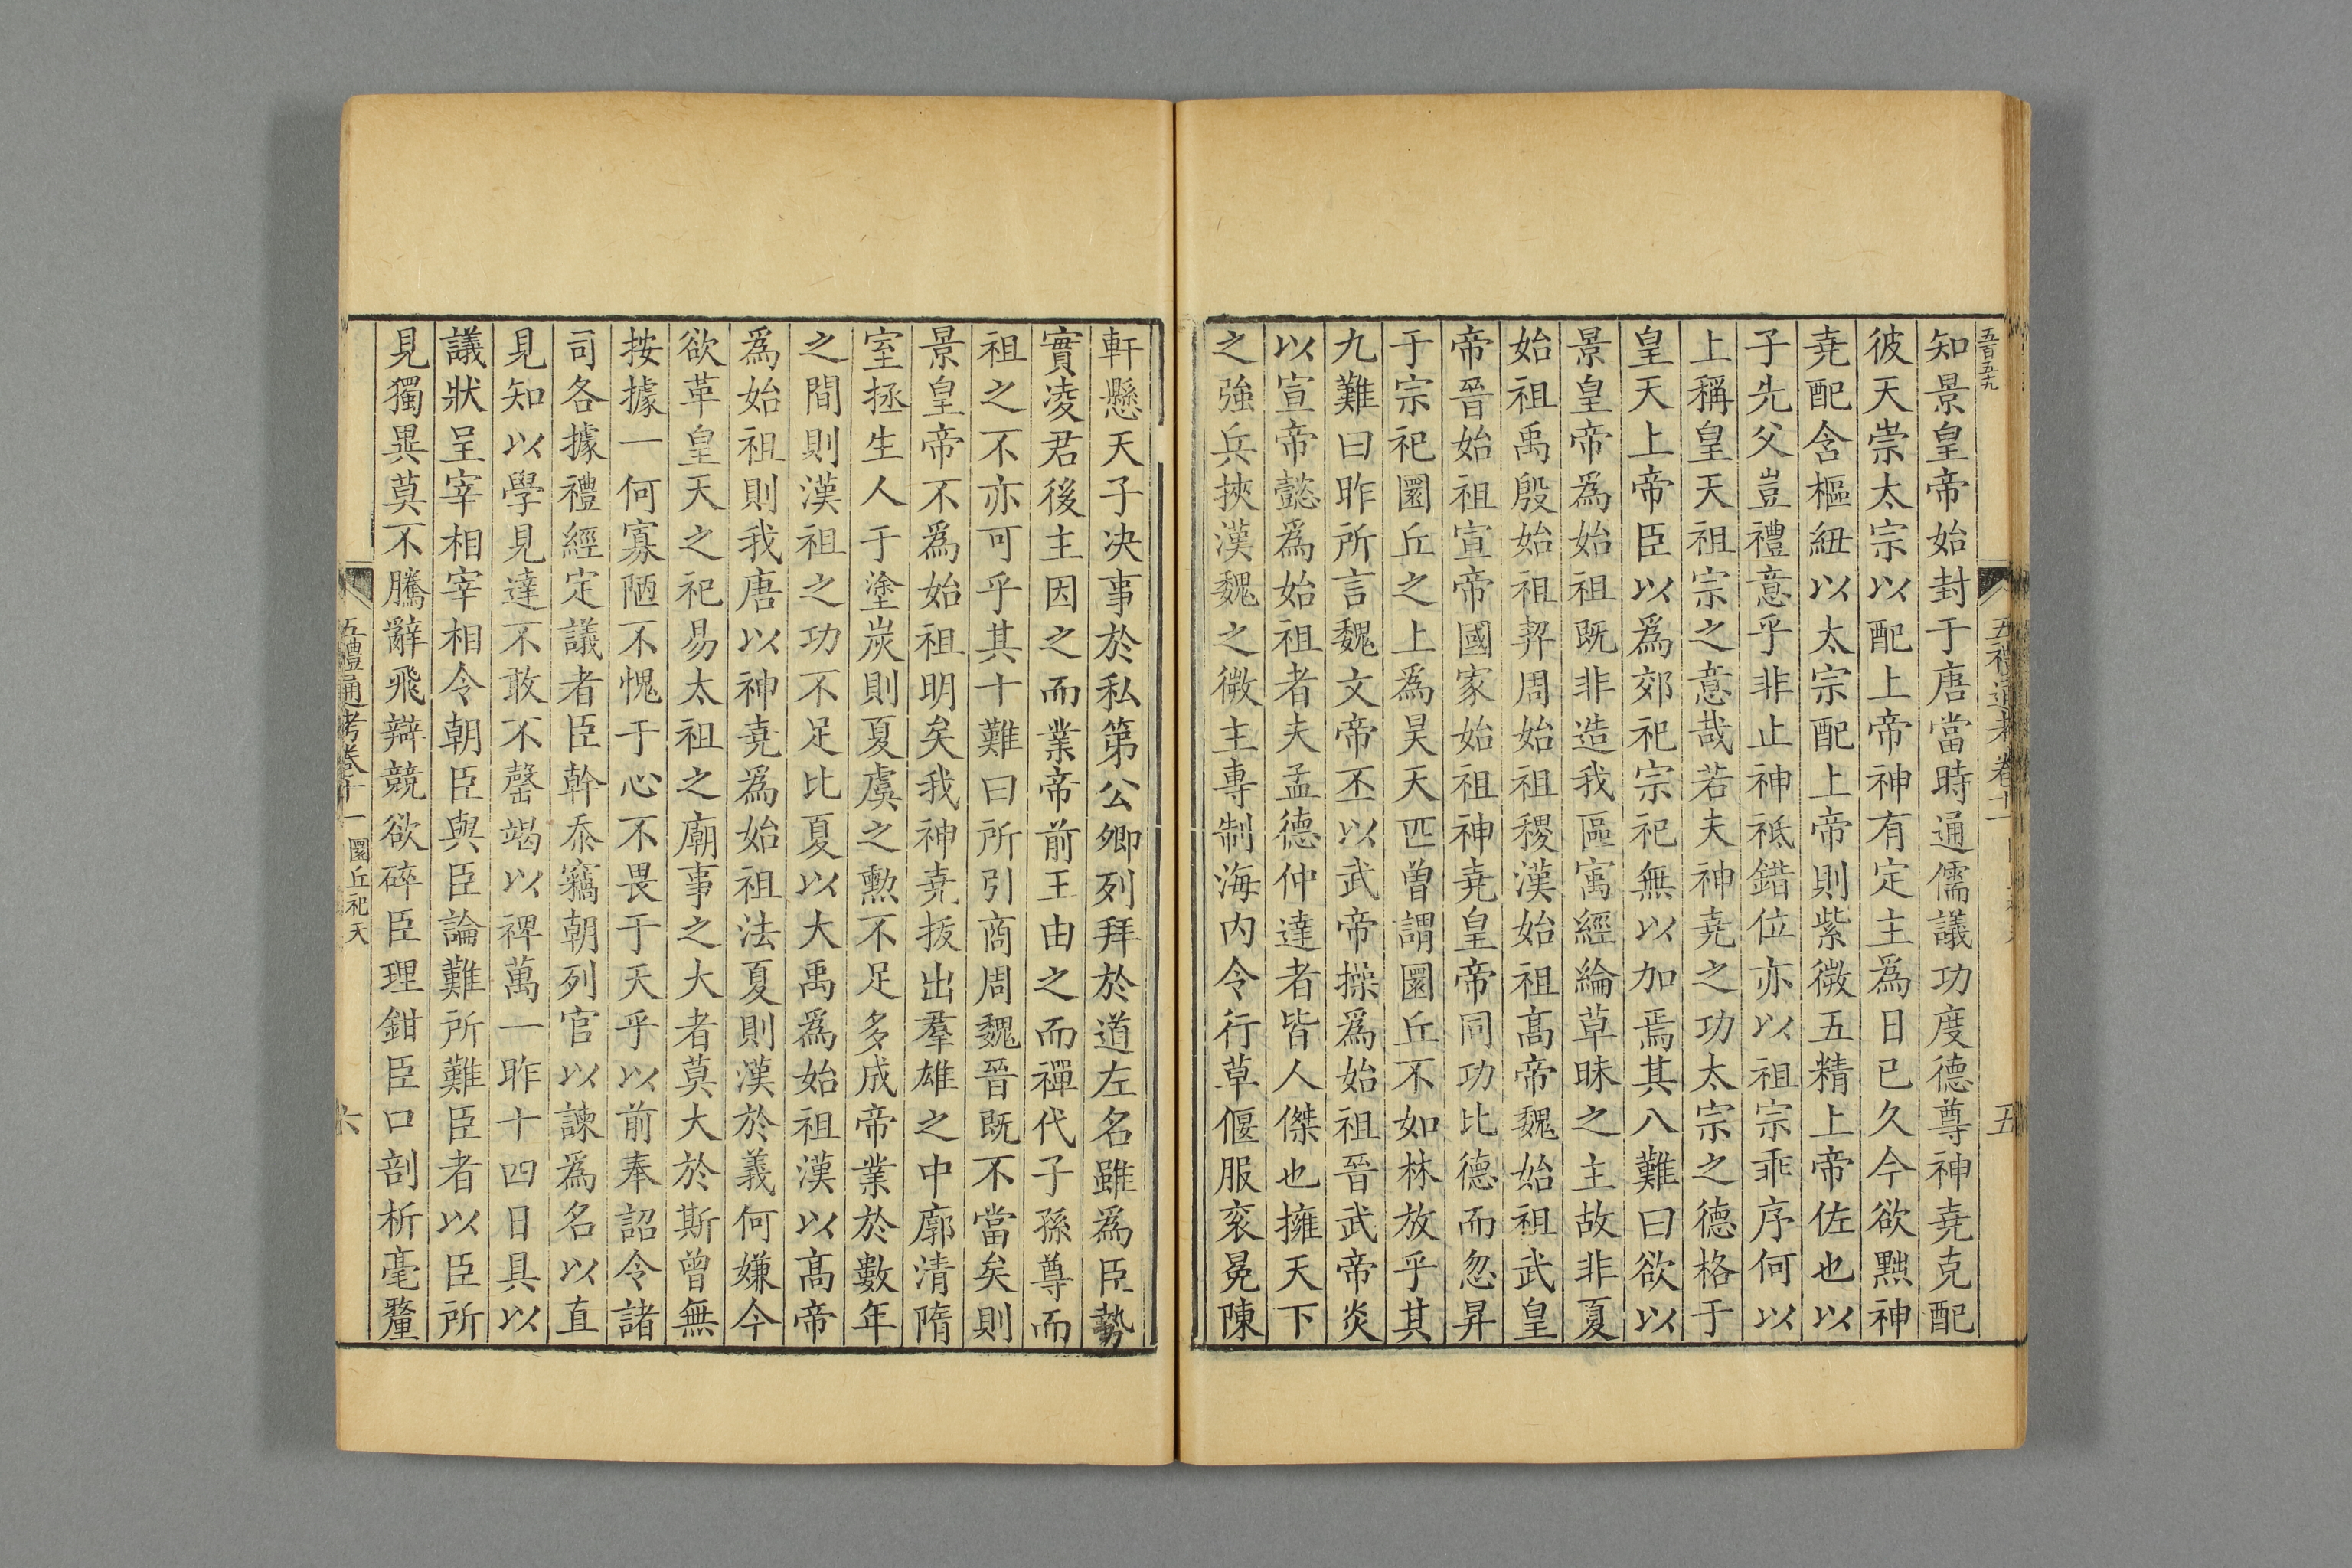 五百五十九
五禮通考卷十一
五
知景皇帝始封于唐當時通儒議功度德尊神堯克配
彼天崇太宗以配上帝神有定主爲日已久今欲黜神
堯配含樞紐以太宗配上帝則紫微五精上帝佐也以
子先父豈禮意乎非止神祇錯位亦以祖宗乖序何以
上稱皇天祖宗之意哉若夫神堯之功太宗之德格于
皇天上帝臣以爲郊祀宗祀無以加焉其八難曰欲以
景皇帝爲始祖既非造我區寓經綸草昧之主故非夏
始祖禹殷始祖契周始祖稷漢始祖高帝魏始祖武皇
帝晉始祖宣帝國家始祖神堯皇帝同功比德而忽昇
于宗祀圜丘之上爲昊天匹曽謂圜丘不如林放乎其
九難曰昨所言魏文帝丕以武帝操爲始祖晉武帝炎
以宣帝懿爲始祖者夫孟德仲達者皆人傑也擁天下
之強兵挾漢魏之微主專制海内令行草偃服衮冕陳
軒懸天子决事於私第公卿列拜於道左名雖爲臣勢
實凌君後主因之而業帝前王由之而禪代子孫尊而
祖之不亦可乎其十難曰所引商周魏晉既不當矣則
景皇帝不爲始祖明矣我神堯拔出羣雄之中廓清隋
室拯生人于塗炭則夏虞之勲不足多成帝業於數年
之間則漢祖之功不足比夏以大禹爲始祖漢以高帝
爲始祖則我唐以神堯爲始祖法夏則漢於義何嫌今
欲革皇天之祀易太祖之廟事之大者莫大於斯曾無
按據一何寡陋不愧于心不畏于天乎以前奉詔令諸
司各據禮經定議者臣幹忝竊朝列官以諫爲名以直
見知以學見達不敢不罄竭以裨萬一昨十四日具以
議狀呈宰相宰相令朝臣與臣論難所難臣者以臣所
見獨異莫不騰辭飛辯競欲碎臣理鉗臣口剖析毫釐
五禮通考卷十一 圜丘祀天
六